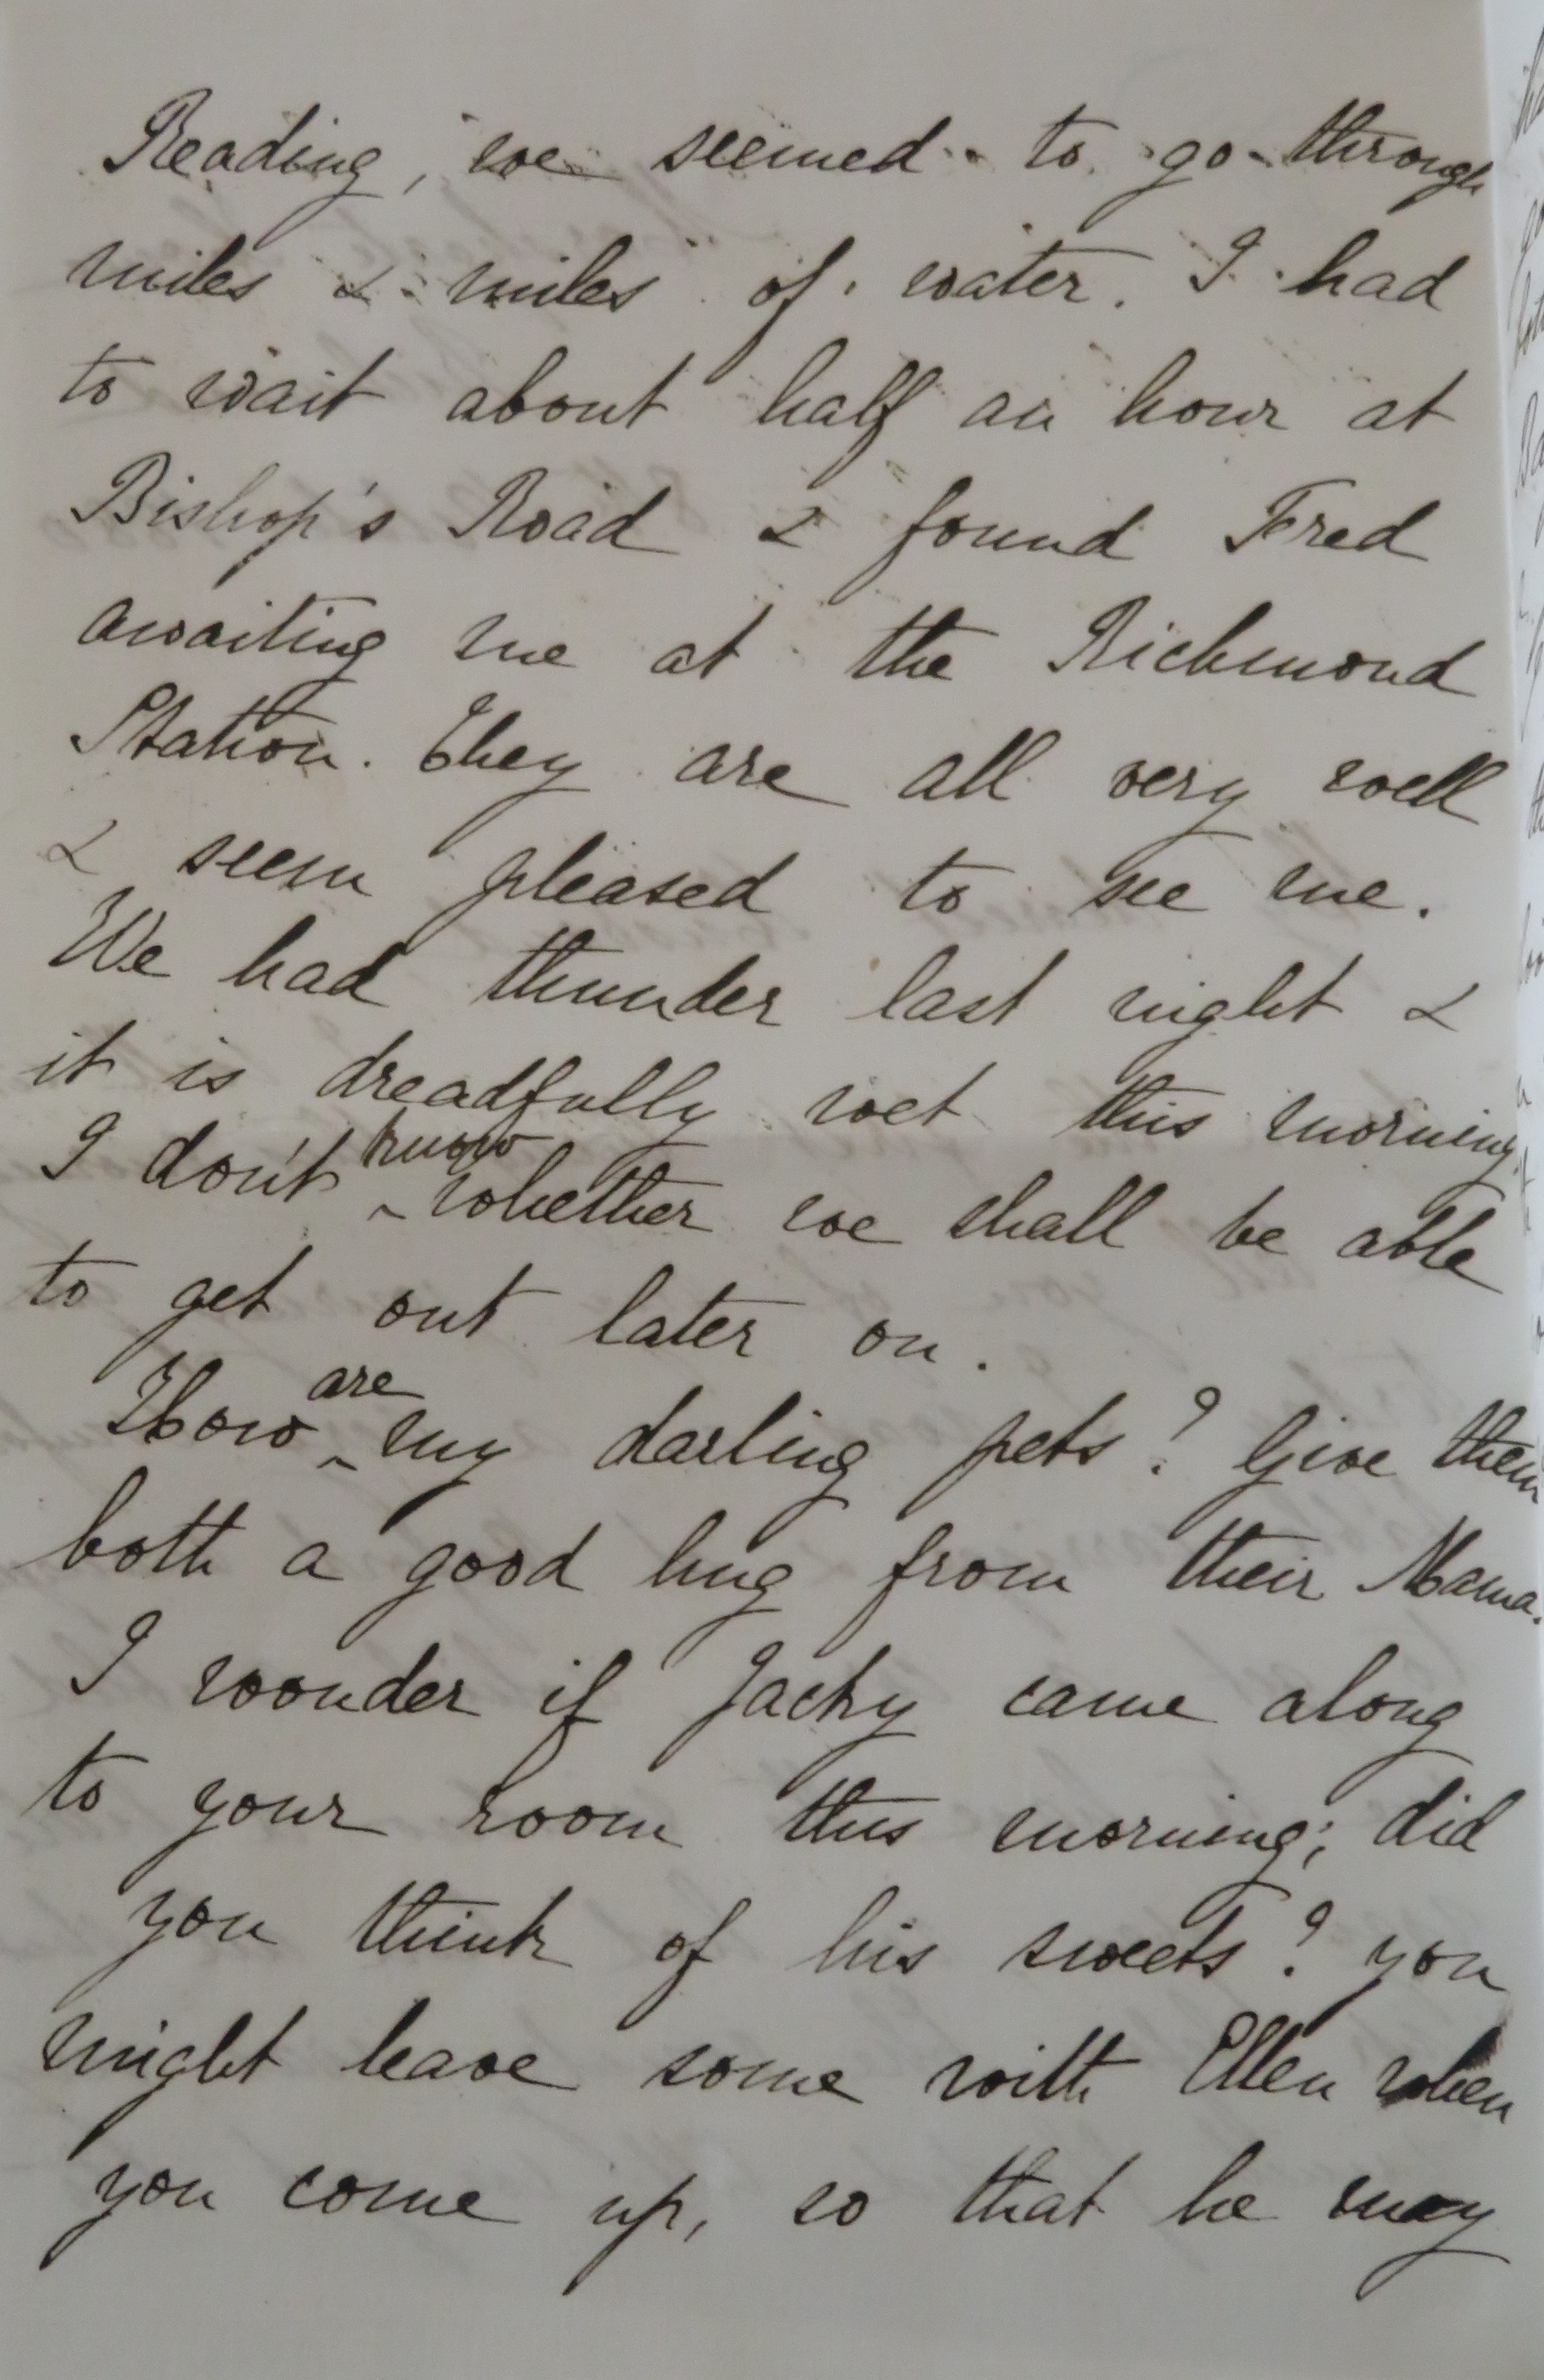 Reading, we seemed to go through
miles & miles of water. I had
to wait about half an hour at
Bishop's Road & found Fred
awaiting me at the Richmond
Station. They are all very well
& seem pleased to see me.
We had thunder last night &
it is dreadfully wet this morning.
I don't ^know whether we shall be able
to get out later on.
How ^are my darling pets? Give them
both a good hug from their Mama.
I wonder if Jacky came along
to your room this morning; did
you think of his sweets? you
might leave some with Ellen when
you come up, so that he may